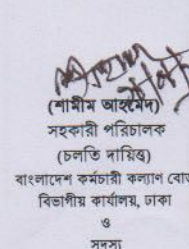 (শামীম আহমেদ)
সহকারী পরিচালক
(চলতি দায়িত্ব)
বাংলাদেশ কর্মচারী কল্যাণ বোর্ড
বিভাগীয় কার্যালয়, ঢাকা
ও
সদস্য